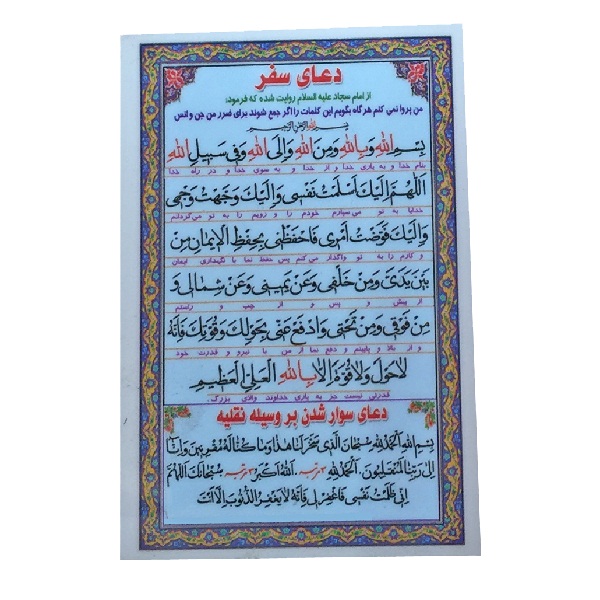 دعای سفر
از امام سجاد علیه السلام روایت شده که فرمود:
من پروا نمی کنم هرگاه بگویم این کلمات را اگر جمع شوند برای ضرر من جن و انس
بسم الله الرحمن الرحیم
بِسْمِ اللهِ وَبِاللهِ وَمِنَ اللهِ وَاِلَى اللهِ وَفی سَبیلِ اللهِ
بنام خدا و به یاری خدا و از خدا و به سوی خدا و در راه خدا
اَللّهُمَّ اِلَیْكَ اَسْلَمْتُ نَفْسی وَاِلَیْكَ وَجَّهْتُ وَجْهی
خدایا به تو می سپارم خودم را و رویم را به تو می گردانم
وَاِلَیْكَ فَوَّضْتُ اَمْری فَاحْفَظْنی بِحِفْظِ الْایمانِ مِنْ
و کارم را به تو واگذار می کنم پس حفظ نما با نگهداری ایمان
بَیْنِ یَدَیَّ وَمِنْ خَلْفی وَعَنْ یَمینی وَعَنْ شِمالی وَ
از پیش و پس و از چپ و راستم
مِنْ فَوْقی وَمِنْ تَحْتی وَادْفَعْ عَنّی بِحَوْلِكَ وَقُوَّتِكَ فَاِنَّهُ
و از بالا و پایینم و دفع نما از من با نیرو و قدرت خود
لاحَوْلَ وَلاقُوَّةَ اِلّا بِاللهِ الْعَلِیِّ الْعَظیمِ
قدرتی نیست جز به یاری خداوند والای بزرگ.
دعای سوار شدن بر وسیله نقلیه
بِسْمِ اللهِ اَلْحَمْدُ لِلّهِ سُبْحانَ الَّذی سَخَّرَ لَنا هذا وَما كُنّا لَهُ مُقْرِنینَ وَاِنّا
اِلى رَبِّنا لَمُنْقَلِبُونَ. اَلْحَمْدُ لِلّهِ ۳ مرتبه. اَللهُ اَكْبَرُ ۳ مرتبه سُبْحانَكَ اللّهُمَّ
اِنّی ظَلَمْتُ نَفْسی فَاغْفِرْ لی فَاِنَّهُ لایَغْفِرُ الذُّنُوبَ اِلّا اَنْتَ